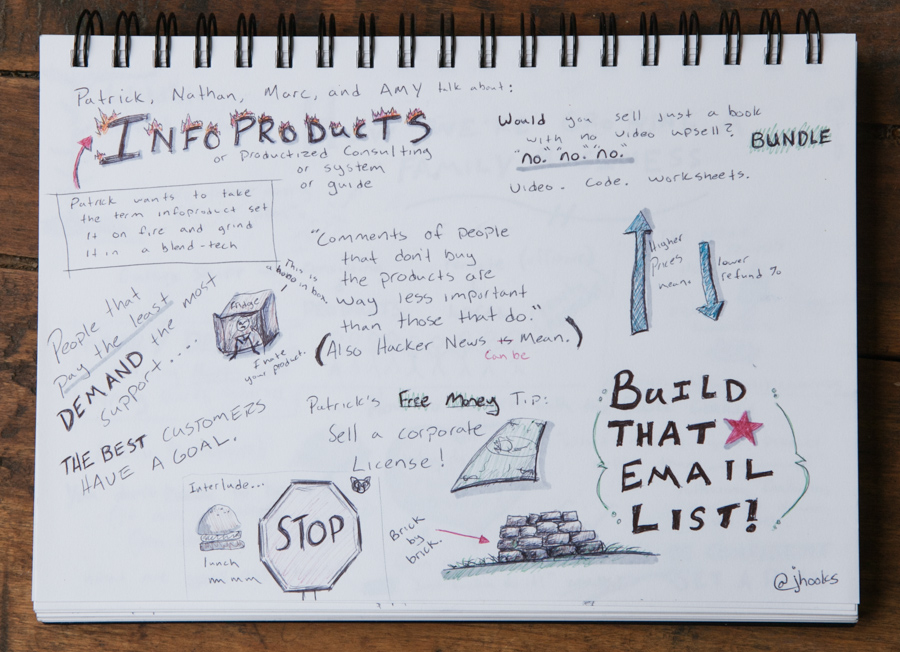 Patrick, Nathan, Marc, and Amy talk about:
INFOPRODUCTS
or Productized Consulting
or system
or guide
Patrick wants to take
the term infoproduct set
it on fire and grind
it in a blend-tech
Would you sell just a book
with no video upsell?
"no." "no." "no."
Video. Code. Worksheets.
BUNDLE
Higher
Prices
mean
lower
refund %
"Comments of people
that don't buy
the products are
way less important
than those that do."
(Also Hacker News is Mean.)
can be
This is
a hobo in box.
fridge
I hate
your product.
People that
pay the least
DEMAND the most
support.....
THE BEST CUSTOMERS
HAVE A GOAL.
Patrick's Free Money Tip:
Sell a corporate
License!
Interlude...
lunch
mm mm
STOP
Brick
by
brick.
BUILD
THAT
EMAIL
LIST!
@jhooks